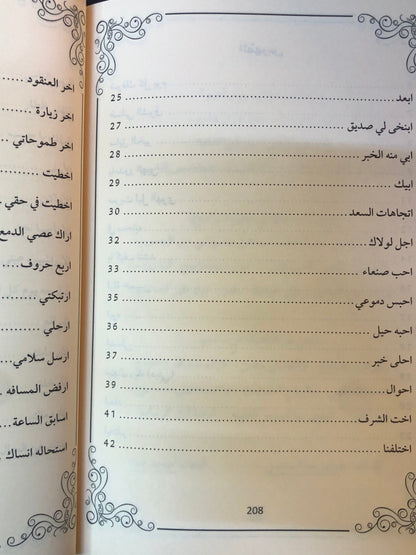 ابعد 25
ابنخى لي صديق 27
ابي منه الخبر 28
ابيك 29
اتجاهات السعد 30
اجل لولاك 32
احب صنعاء 33
احبس دموعي 35
احبه حيل 36
احلى خبر 37
احوال 39
اخت الشرف 41
اختلفنا 42
208
اخر العنقود
اخر زيارة
اخر طموحاتي
اخطيت
اخطيت في حقي
اراك عصي الدمع
اربع حروف
ارتبكتي
ارحلي
ارسل سلامي
ارفض المسافه
اسابق الساعة
استحاله انساك